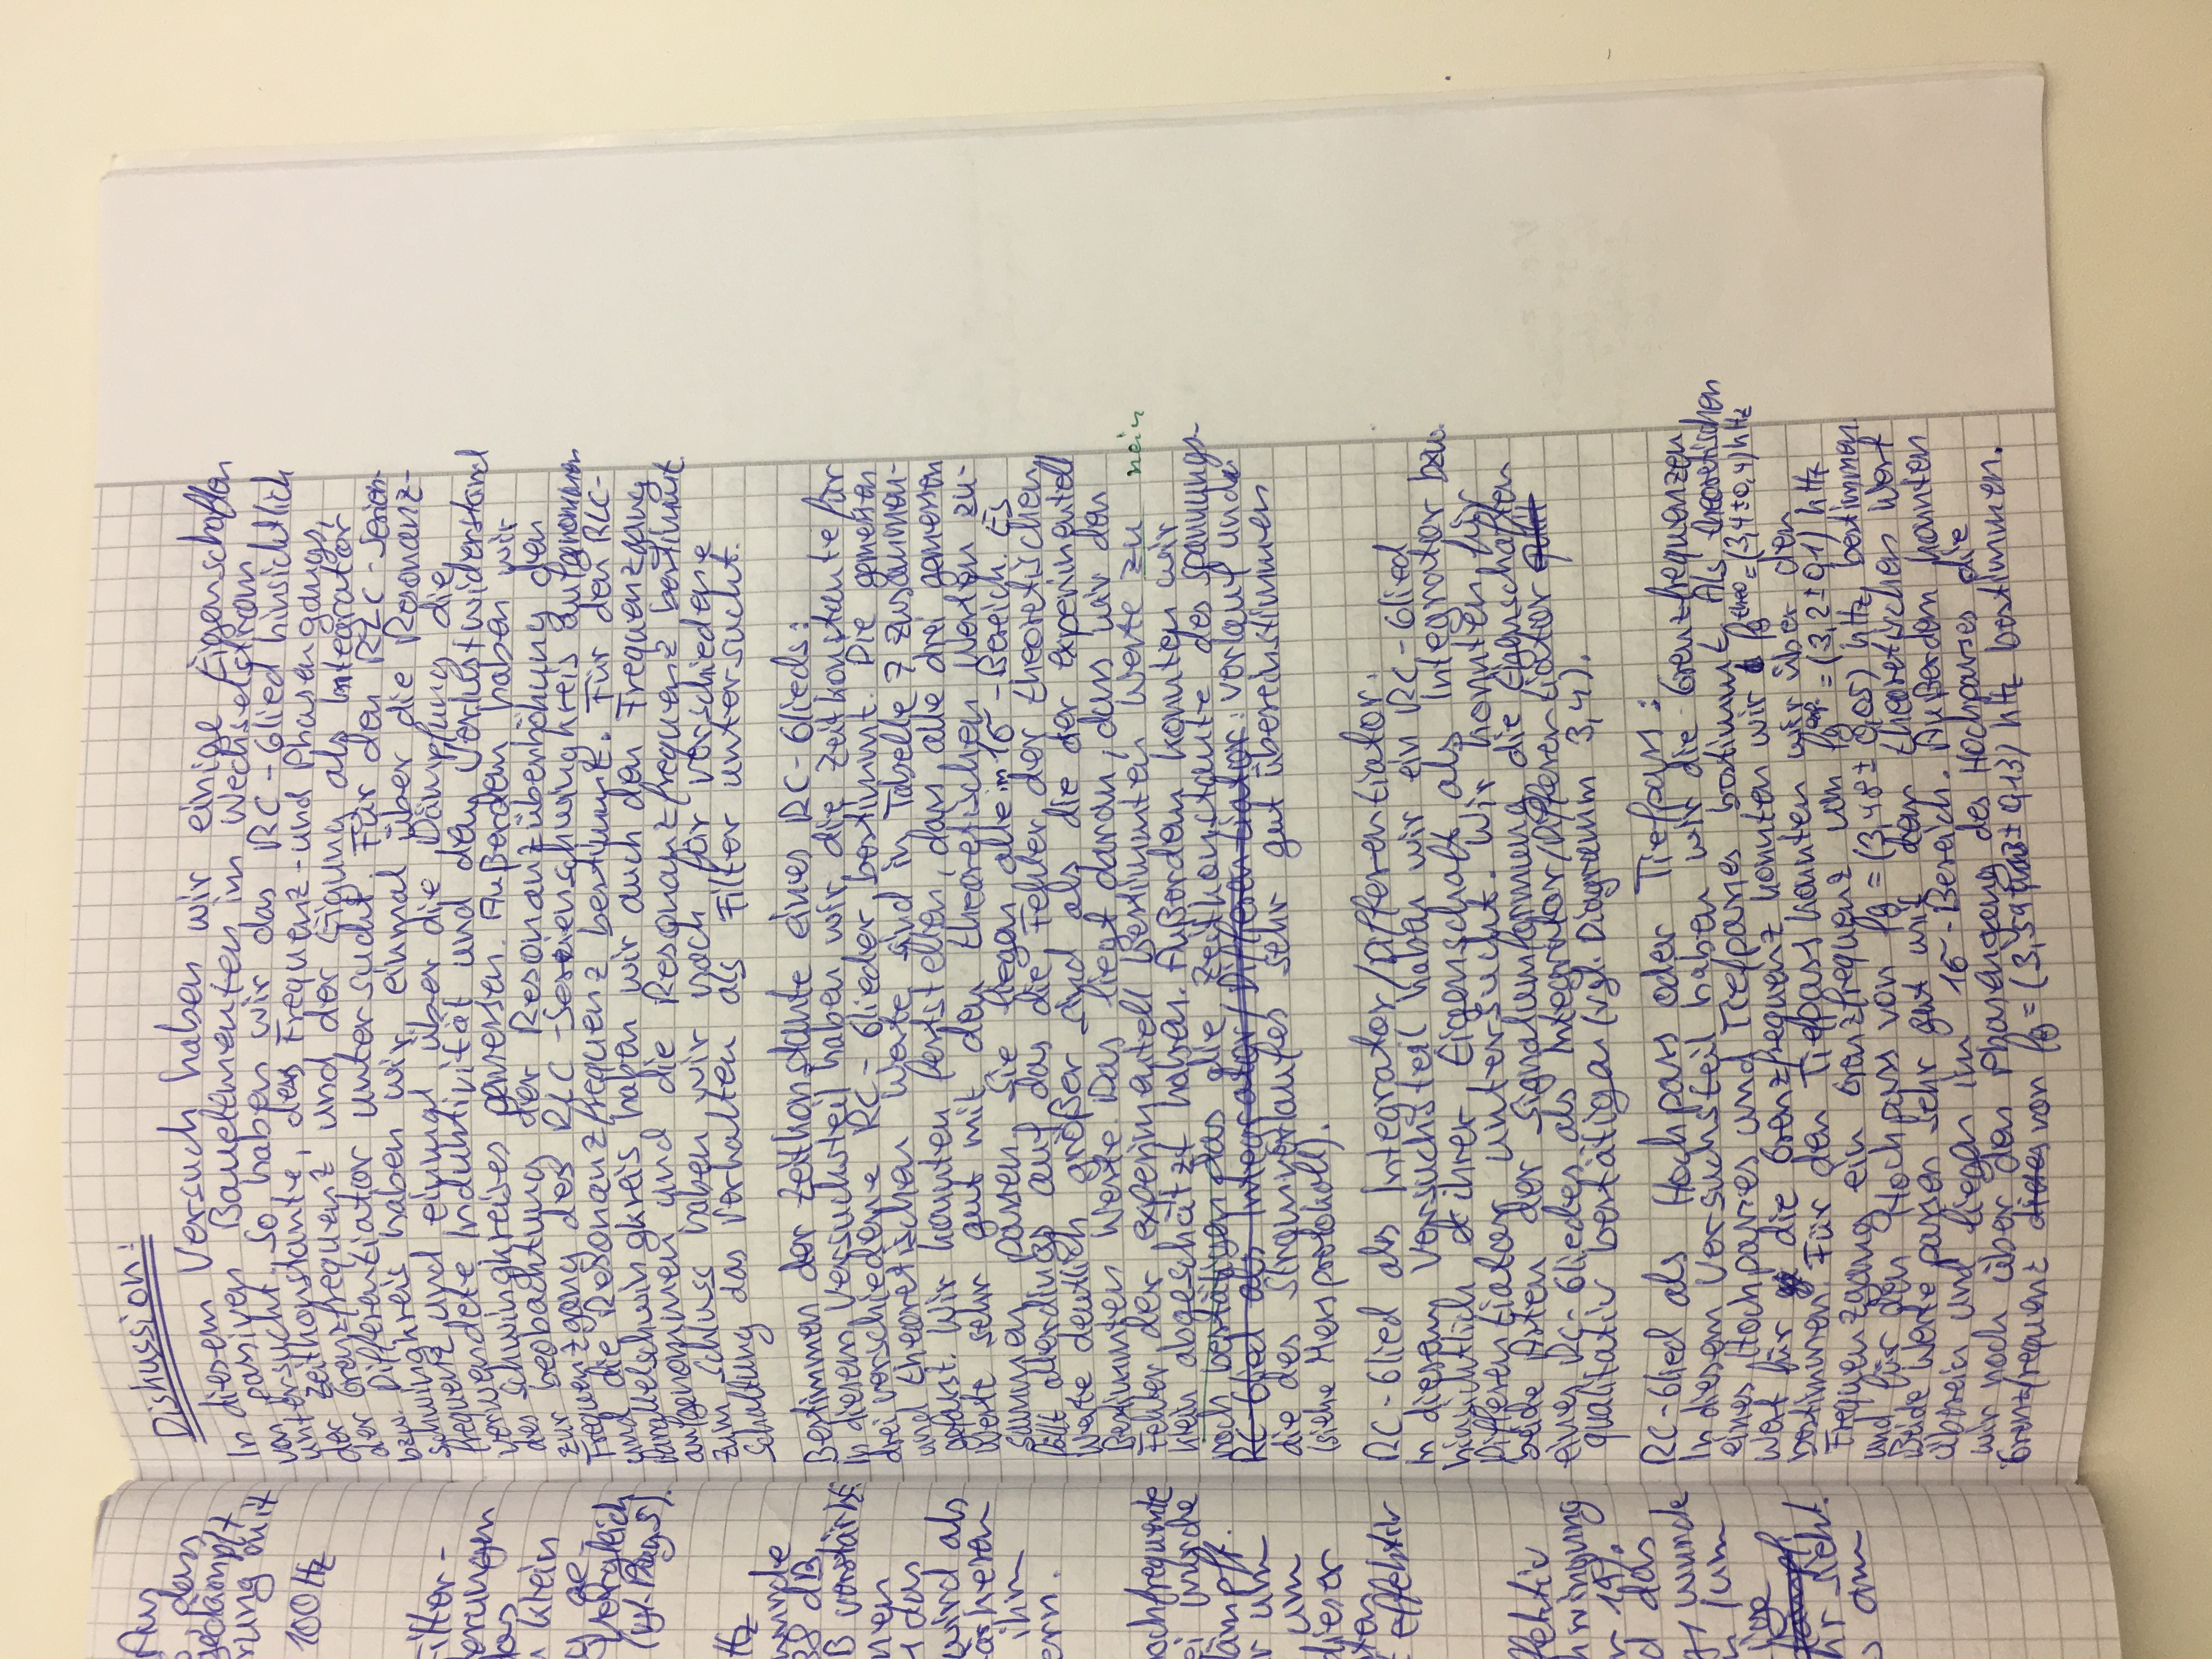 Aus
, dass
gedämpft
rung mit
100 Hz
Filter-
erungen
das
klein
ge-
Vergleich
(vgl. Diag. 5).
Hz
wurde
38 dB,
B verstärkt
nen
das
wird als
ihm
ern.
hochfrequente
ei wurde
dämpft.
r um
um
dieser
effektiv
ffektiv
hwingung
d das
wurde
um
Diskussion:
In diesem Versuch haben wir einige Eigenschaften
von passiven Bauelementen im Wechselstrom
untersucht. So haben wir das RC-Glied hinsichtlich
der Zeitkonstante, des Frequenz- und Phasengangs,
der Grenzfrequenz und der Eigung als Integrator
bzw. Differentiator untersucht. Für den RLC-Serien-
schwingkreis haben wir einmal über die Resonanz-
frequenz und einmal über die Dämpfung die
verwendete Induktivität und den Verlustwiderstand
des Schwingkreises gemessen. Außerdem haben wir
zur beobachtung der Resonanzüberhöhung den
Frequenzgang des RLC-Serienschwingkreis aufgenommen
und die Resonanzfrequenz bestimmt. Für den RLC-
Parallelschwingkreis haben wir auch den Frequenzgang
aufgenommen und die Resonanzfrequenz bestimmt.
Zum Schluss haben wir noch für verschiedene
Schaltung das Verhalten als Filter untersucht.
Bestimmen der Zeitkonstante eines RC-Glieds:
In diesem Versuchsteil haben wir die Zeitkonstante für
drei verschiedene RC-Glieder bestimmt. Die gemessen
und theoretischen Werte sind in Tabelle 7 zusammen-
gefasst. Wir konnten feststellen, dass alle drei gemessen
Werte sehr gut mit den theoretischen Werten zu-
sammen passen. Sie liegen alle im 1σ-Bereich. Es
fällt allerdings auf das die Fehler der theoretischen
Werte deutlich größer sind als die der experimentell
Bestimmten Werte. Das liegt daran, dass wir den
Fehler der experimentell bestimmten Werte zu nein
klein abgeschätzt haben. Außerdem konnten wir
noch bestätigen das die Zeitkonstante des Spannungs-
RC-Glied als Integrator/Differentiator: verlauf und
die des Stromverlaufes sehr gut übereinstimmen
(siehe Messprotokoll).
RC-Glied als Integrator/Differentiator:
In diesem Versuchsteil haben wir ein RC-Glied
hinsichtlich ihrer Eigenschaft als Integrator bzw.
Differentiator untersucht. Wir konnten für
beide Arten der Signalumformung die Eigenschaften
eines RC-Gliedes als Integrator/Differentiator
qualitativ bestätigen (vgl. Diagramm 3,4).
RC-Glied als Hochpass oder Tiefpass:
In diesem Versuchsteil haben wir die Grenzfrequenzen
eines Hochpasses und Tiefpasses bestimmt. Als theoretischen
Wert für die Grenzfrequenz konnten wir fg^theo = (3,4±0,4) kHz
bestimmen. Für den Tiefpass konnten wir über den
Frequenzgang ein Grenzfrequenz von fg^exp. = (3,2±0,1) kHz
und für den Hochpass von fg = (3,48±0,05) kHz bestimmen.
Beide Werte passen sehr gut mit dem theoretischen Wert
überein und liegen im 1σ-Bereich. Außerdem konnten
wir noch über den Phasengang des Hochpasses die
Grenzfrequenz dieses von fg = (3,59 ± 0,13) kHz bestimmen.